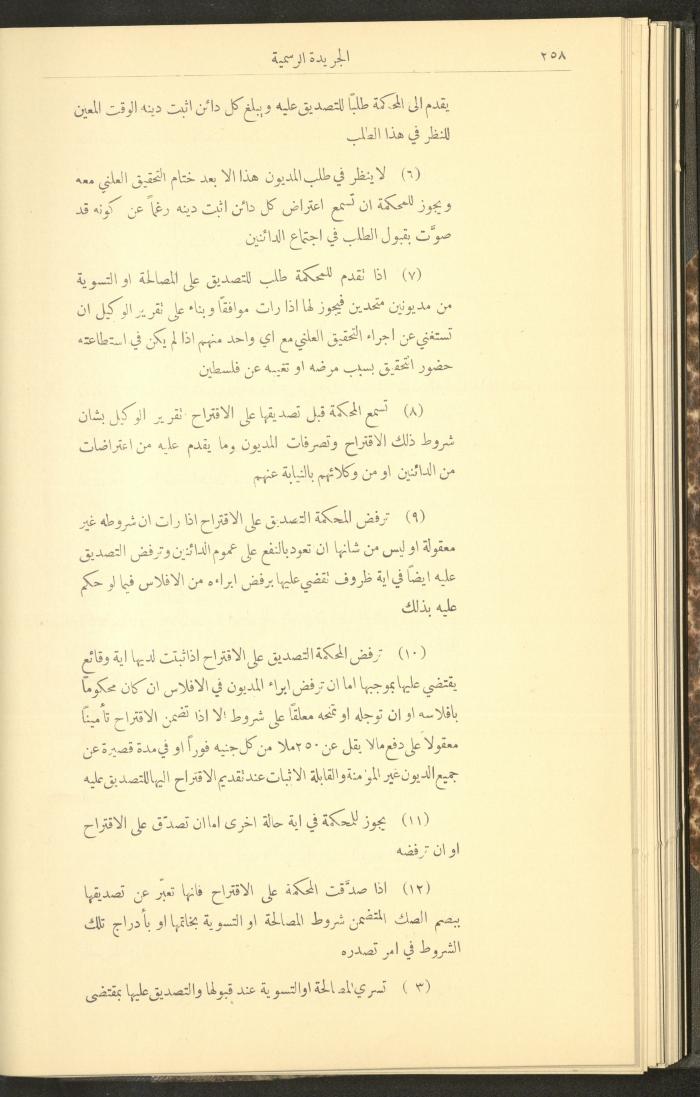 ٢٥٨
الجريدة الرسمية
يقدم الى المحكمة طلبًا للتصديق عليه ويبلغ كل دائن اثبت دينه الوقت المعين
للنظر في هذا الطلب
(٦) لا ينظر في طلب المديون هذا الا بعد ختام التحقيق العلني معه
ويجوز للمحكمة ان تسمع اعتراض كل دائن اثبت دينه رغماً عن كونه قد
صوَّت بقبول الطلب في اجتماع الدائنين
(٧) اذا تقدم للمحكمة طلب للتصديق على المصالحة او التسوية
من مديونين متحدين فيجوز لها اذا رات موافقًا وبناء على تقرير الوكيل ان
تستغني عن اجراء التحقيق العلني مع اي واحد منهم اذا لم يكن في استطاعته
حضور التحقيق بسبب مرضه او تغيبه عن فلسطين
(٨) تسمع المحكمة قبل تصديقها على الاقتراح تقرير الوكيل بشان
شروط ذلك الاقتراح وتصرفات المديون وما يقدم عليه من اعتراضات
من الدائنين او من وكلائهم بالنيابة عنهم
(٩) ترفض المحكمة التصديق على الاقتراح اذا رات ان شروطه غير
معقولة او ليس من شانها ان تعود بالنفع على عموم الدائنين وترفض التصديق
عليه ايضًا في اية ظروف تقضي عليها برفض ابراءه من الافلاس فيما لو حكم
عليه بذلك
(١٠) ترفض المحكمة التصديق على الاقتراح اذا ثبتت لديها اية وقائع
يقتضي عليها بموجبها اما ان ترفض ابراء المديون في الافلاس ان كان محكومًا
بافلاسه او ان توجله او تمنحه معلقًا على شروط الا اذا تضمن الاقتراح تأمينًا
معقولاً على دفع مالا يقل عن ٢٥٠ ملا من كل جنيه فوراً او في مدة قصيرة عن
جميع الديون غير المؤمنة والقابلة الاثبات عند تقديم الاقتراح اليها للتصديق عليه
(١١) يجوز للمحكمة في اية حالة اخرى اما ان تصدّق على الاقتراح
او ان ترفضه
(١٢) اذا صدَّقت المحكمة على الاقتراح فانها تعبّر عن تصديقها
ببصم الصك المتضمن شروط المصالحة او التسوية بخاتمها او بأدراج تلك
الشروط في امر تصدره
( ٣) تسري المصالحة او التسوية عند قبولها والتصديق عليها بمقتضى